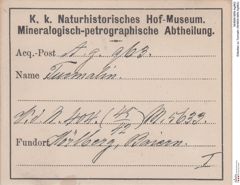 K. k. Naturhistorisches Hof-Museum.
Mineralogisch-petrographische Abtheilung.
Acq.-Post A. g. 963.
Name Turmalin.
M. 5633.
Fundort Hörlberg, Baiern.
I